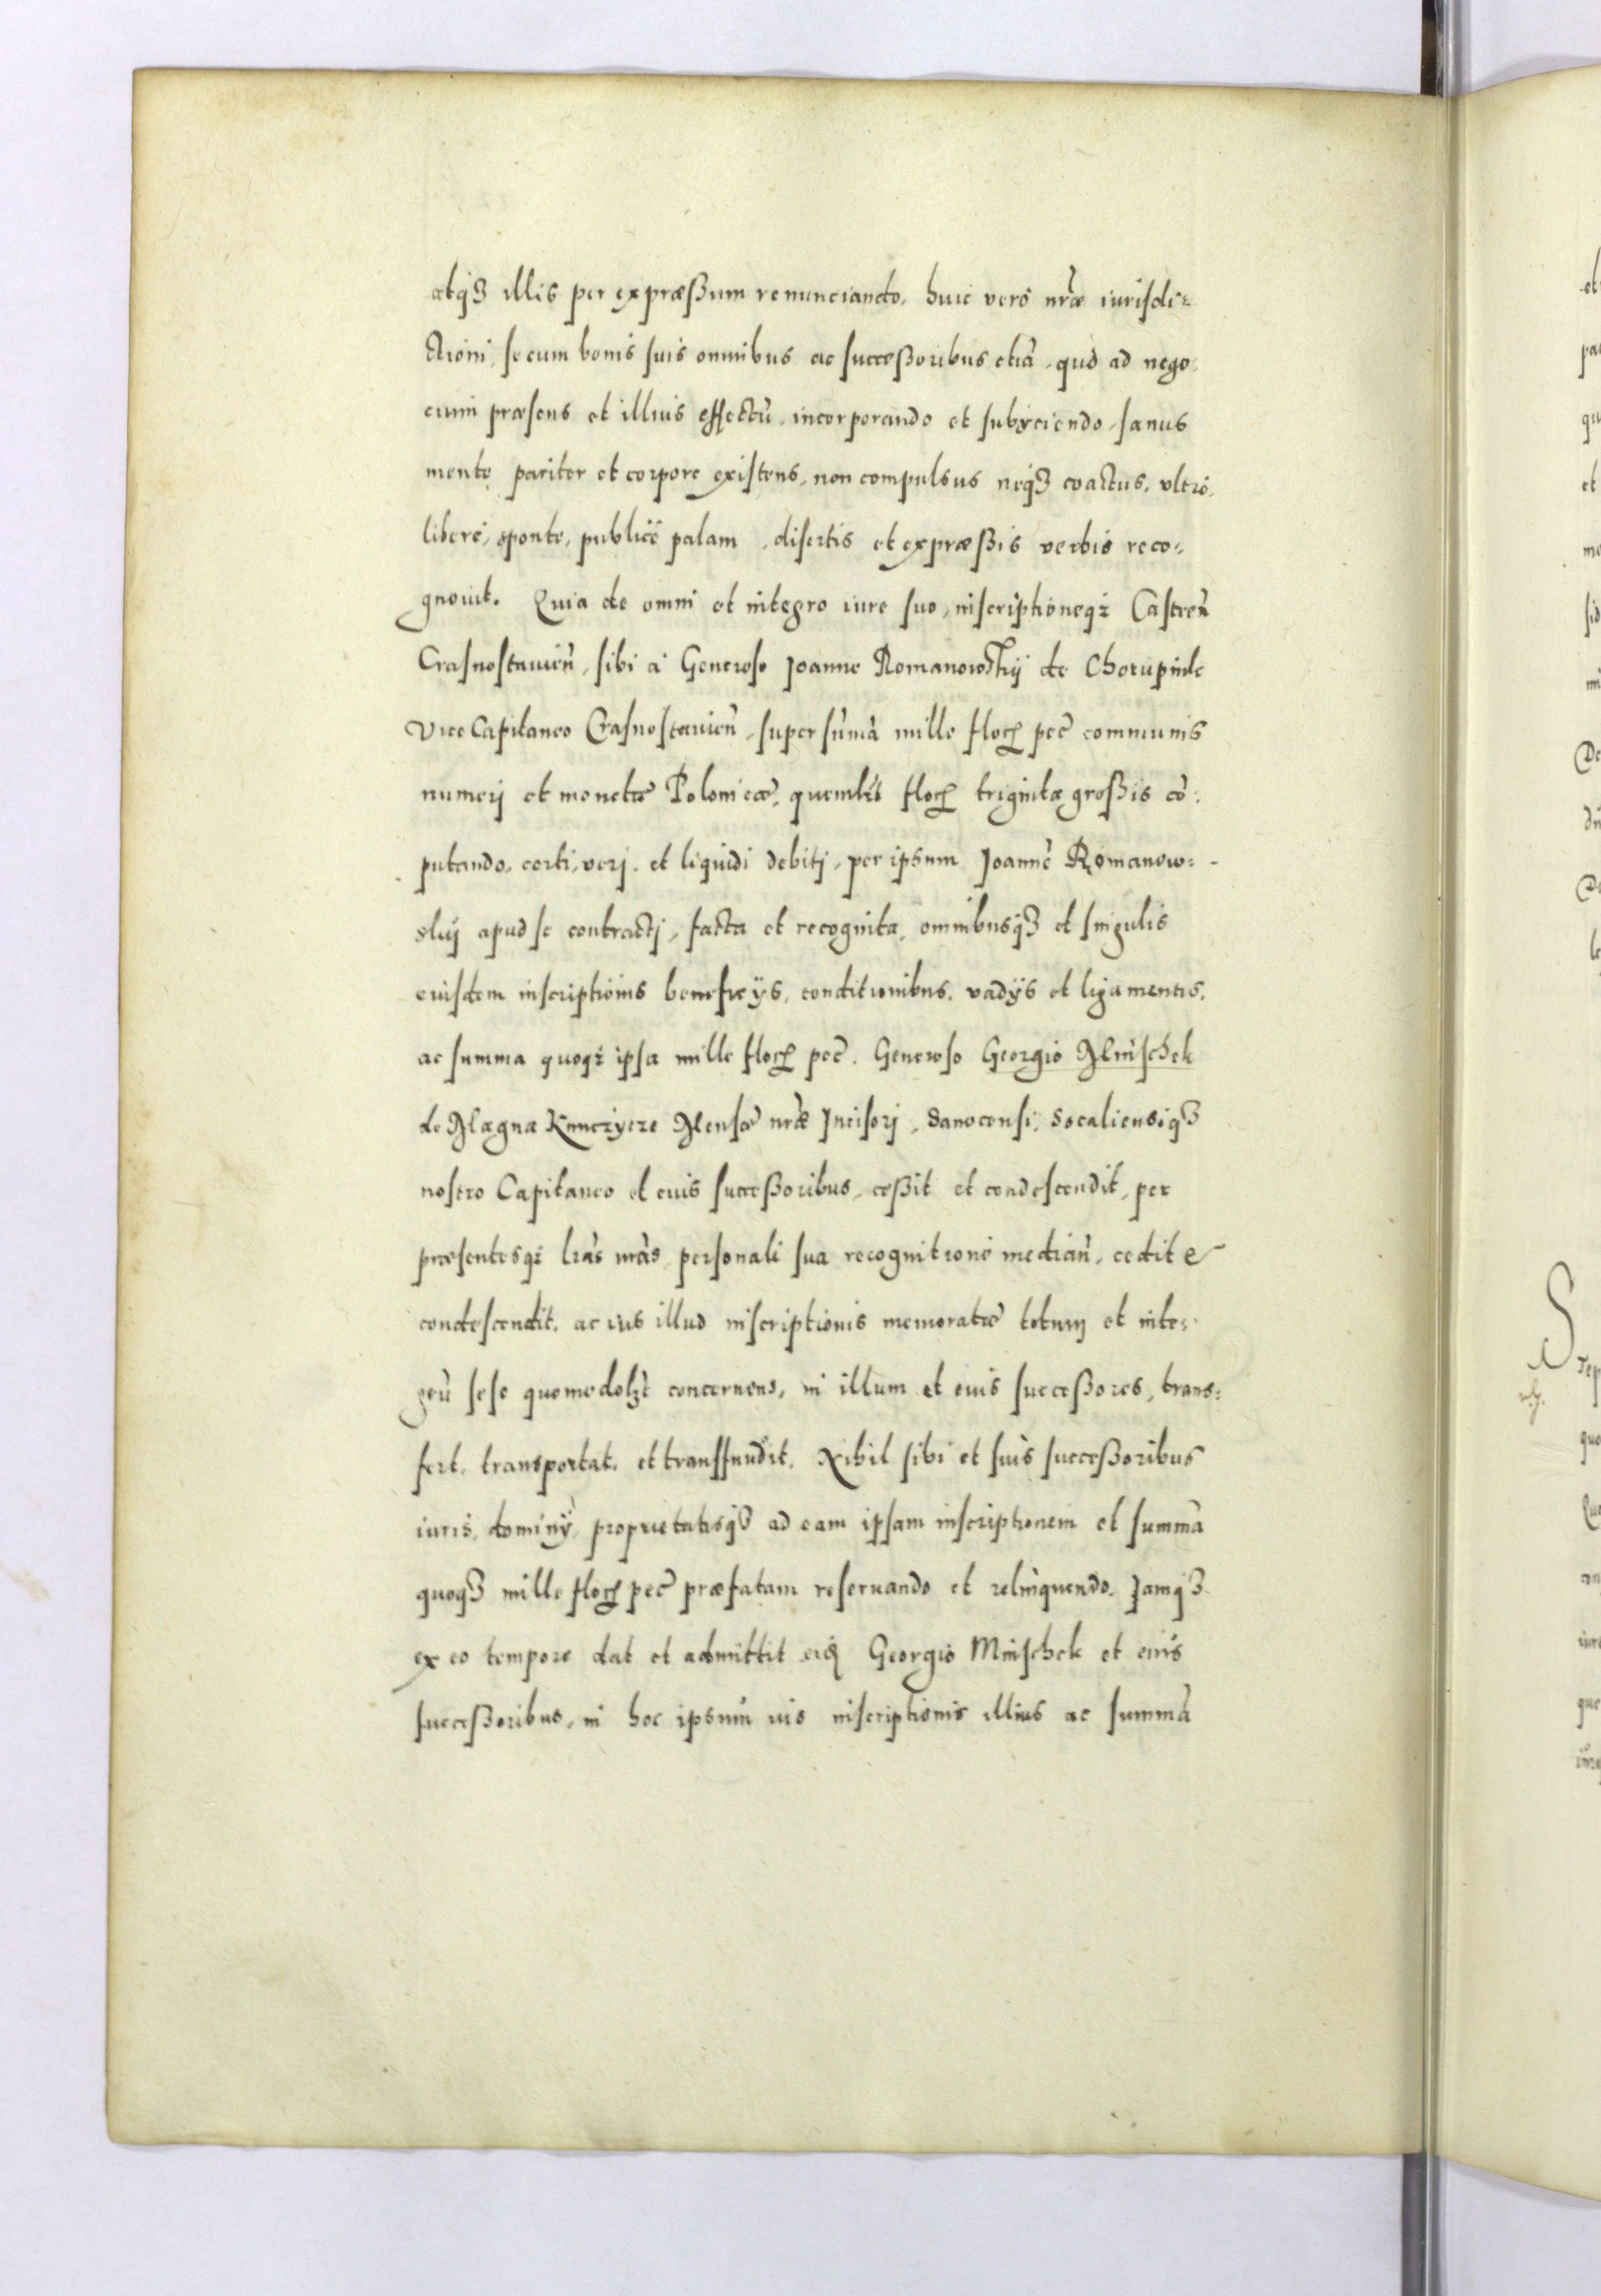 atq₃ illis per expræßum renunciando, huic vero nr̃æ iurisdi-
ctioni, se cum bonis suis omnibus ac succeßoribus etiã, quo ad nego-
cium præsens et illius effectũ, incorporando et subyciendo, sanus
mente pariter et corpore existens, non compulsus neq₃ coactus, vltro,
libere, sponte, publice palam, disertis et expræßis verbis reco-
gnouit. Quia de omni et integro iure suo, inscriptioneq₃ Castreñ
Crasnostauieñ, sibi à Generoso Joanne Romanowskij de Chorupnik
Vice Capitaneo Crasnostauieñ, super sũmã mille floꝝ pec̃ communis
numerj et monetæ Polonicæ, quemlib̃ floꝝ triginta großis cõ-
putando, certi, verj, et liquidi debitj, per ipsum Joannẽ Romanow-
skij apud se contractj, facta et recognita, omnibusq₃ et singulis
euisdem inscriptionis beneficÿs, conditionibus, vadÿs et ligamentis,
ac summa quoq₃ ipsa mille floꝝ pec̃. Generoso Georgio Mnischek
de Magna Kunczycze Mensæ nr̃æ Incisorj, Sanocensi, Socaliensiq₃
nostro Capitaneo et euis succeßoribus, ceßit et condescendit, per
præsentesq₃ lrãs nrãs, personali sua recognitione mediañ, cedit &
condescendit, ac ius illud inscriptionis memoratæ totum et inte-
grũ sese quomodolꝫt concernens, in illum et euis succeßores, trans-
fert, transportat, et transfundit. Nihil sibi et suis succeßoribus
iuris, dominÿ, proprietatisq₃ ad eam ipsam inscriptionem et summã
quoq₃ mille floꝝ pec̃ præfatam reseruando et relinquendo. Jamq₃
ex eo tempore dat et admittit eid Georgio Mnischek et euis
succeßoribus, in hoc ipsum ius inscriptionis illius ac summã